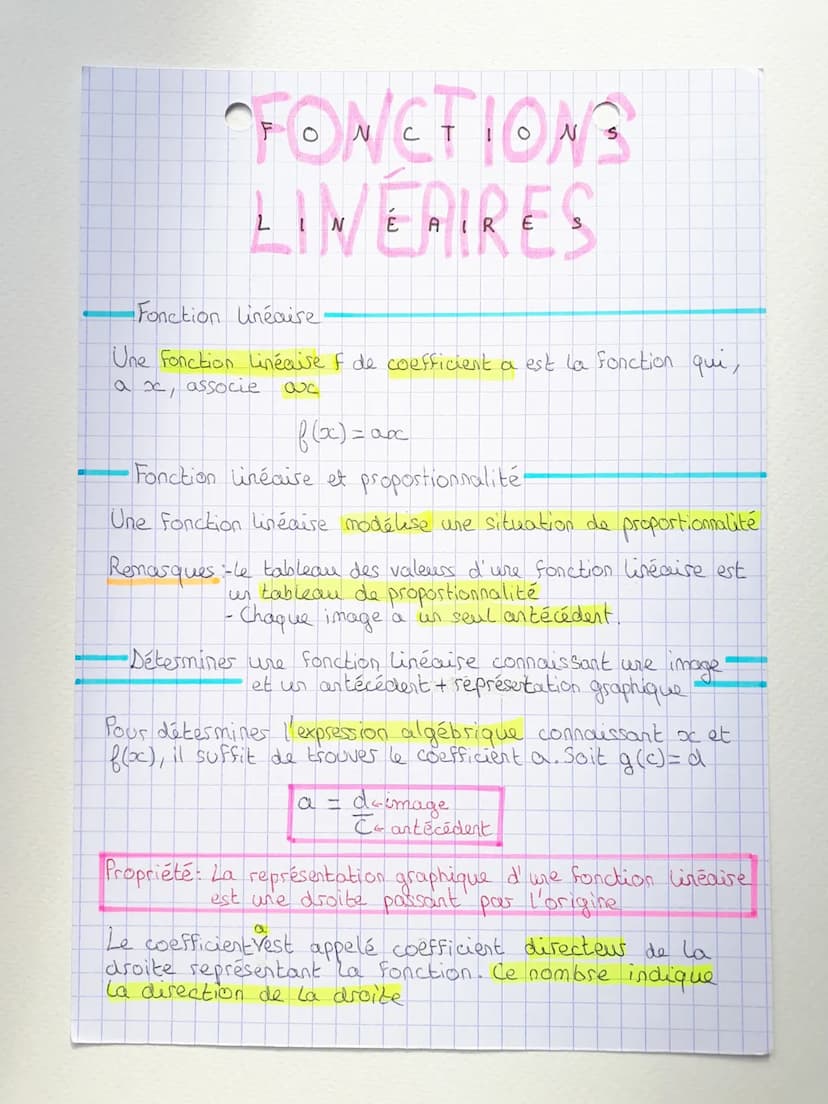 FONCTIONS
LINÉAIRES
Fonction linéaire
Une fonction linéaire f de coefficient a est la fonction qui,
a x, associe ax
f(x) = ax
Fonction linéaire et proportionnalité
Une fonction linéaire modélise une situation de proportionnalité
Remarques :- Le tableau des valeurs d'une fonction linéaire est
un tableau de proportionnalité
- Chaque image a un seul antécédent.
Déterminer une fonction linéaire connaissant une image
et un antécédent + représentation graphique
Pour déterminer l'expression algébrique connaissant x et
f(x), il suffit de trouver le coefficient a. Soit g(c) = d
a = d ← image
c ← antécédent
Propriété : La représentation graphique d'une fonction linéaire
est une droite passant par l'origine
Le coefficient a est appelé coefficient directeur de la
droite représentant la fonction. Ce nombre indique
la direction de la droite